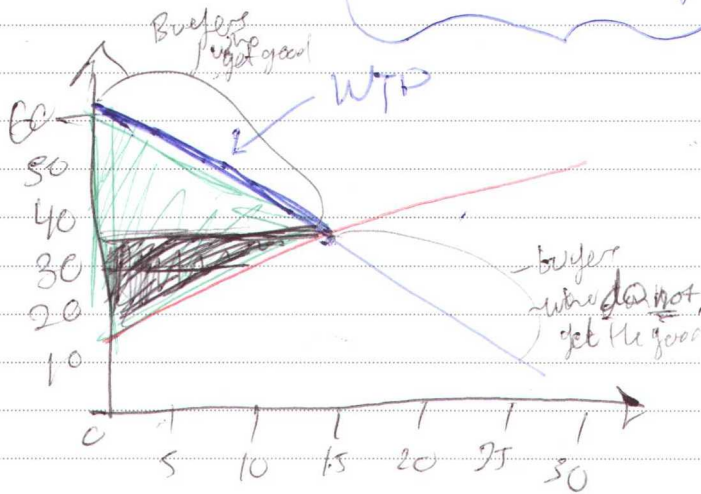 Buyers
who
get good
WTP
60
50
40
30
20
10
0
5
10
15
20
25
30
- buyers
who do not
get the good